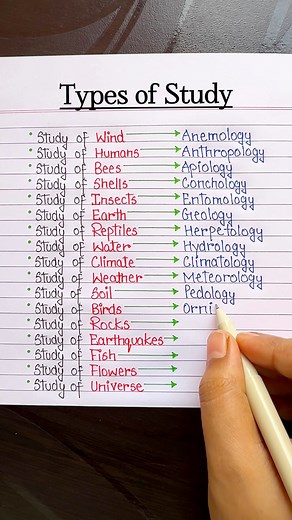 Types of Study
• Study of Wind → Anemology
• Study of Humans → Anthropology
• Study of Bees → Apiology
• Study of Shells → Conchology
• Study of Insects → Entomology
• Study of Earth → Geology
• Study of Reptiles → Herpetology
• Study of Water → Hydrology
• Study of Climate → Climatology
• Study of Weather → Meteorology
• Study of Soil → Pedology
• Study of Birds → Orni
• Study of Rocks →
• Study of Earthquakes →
• Study of Fish →
• Study of Flowers →
• Study of Universe →